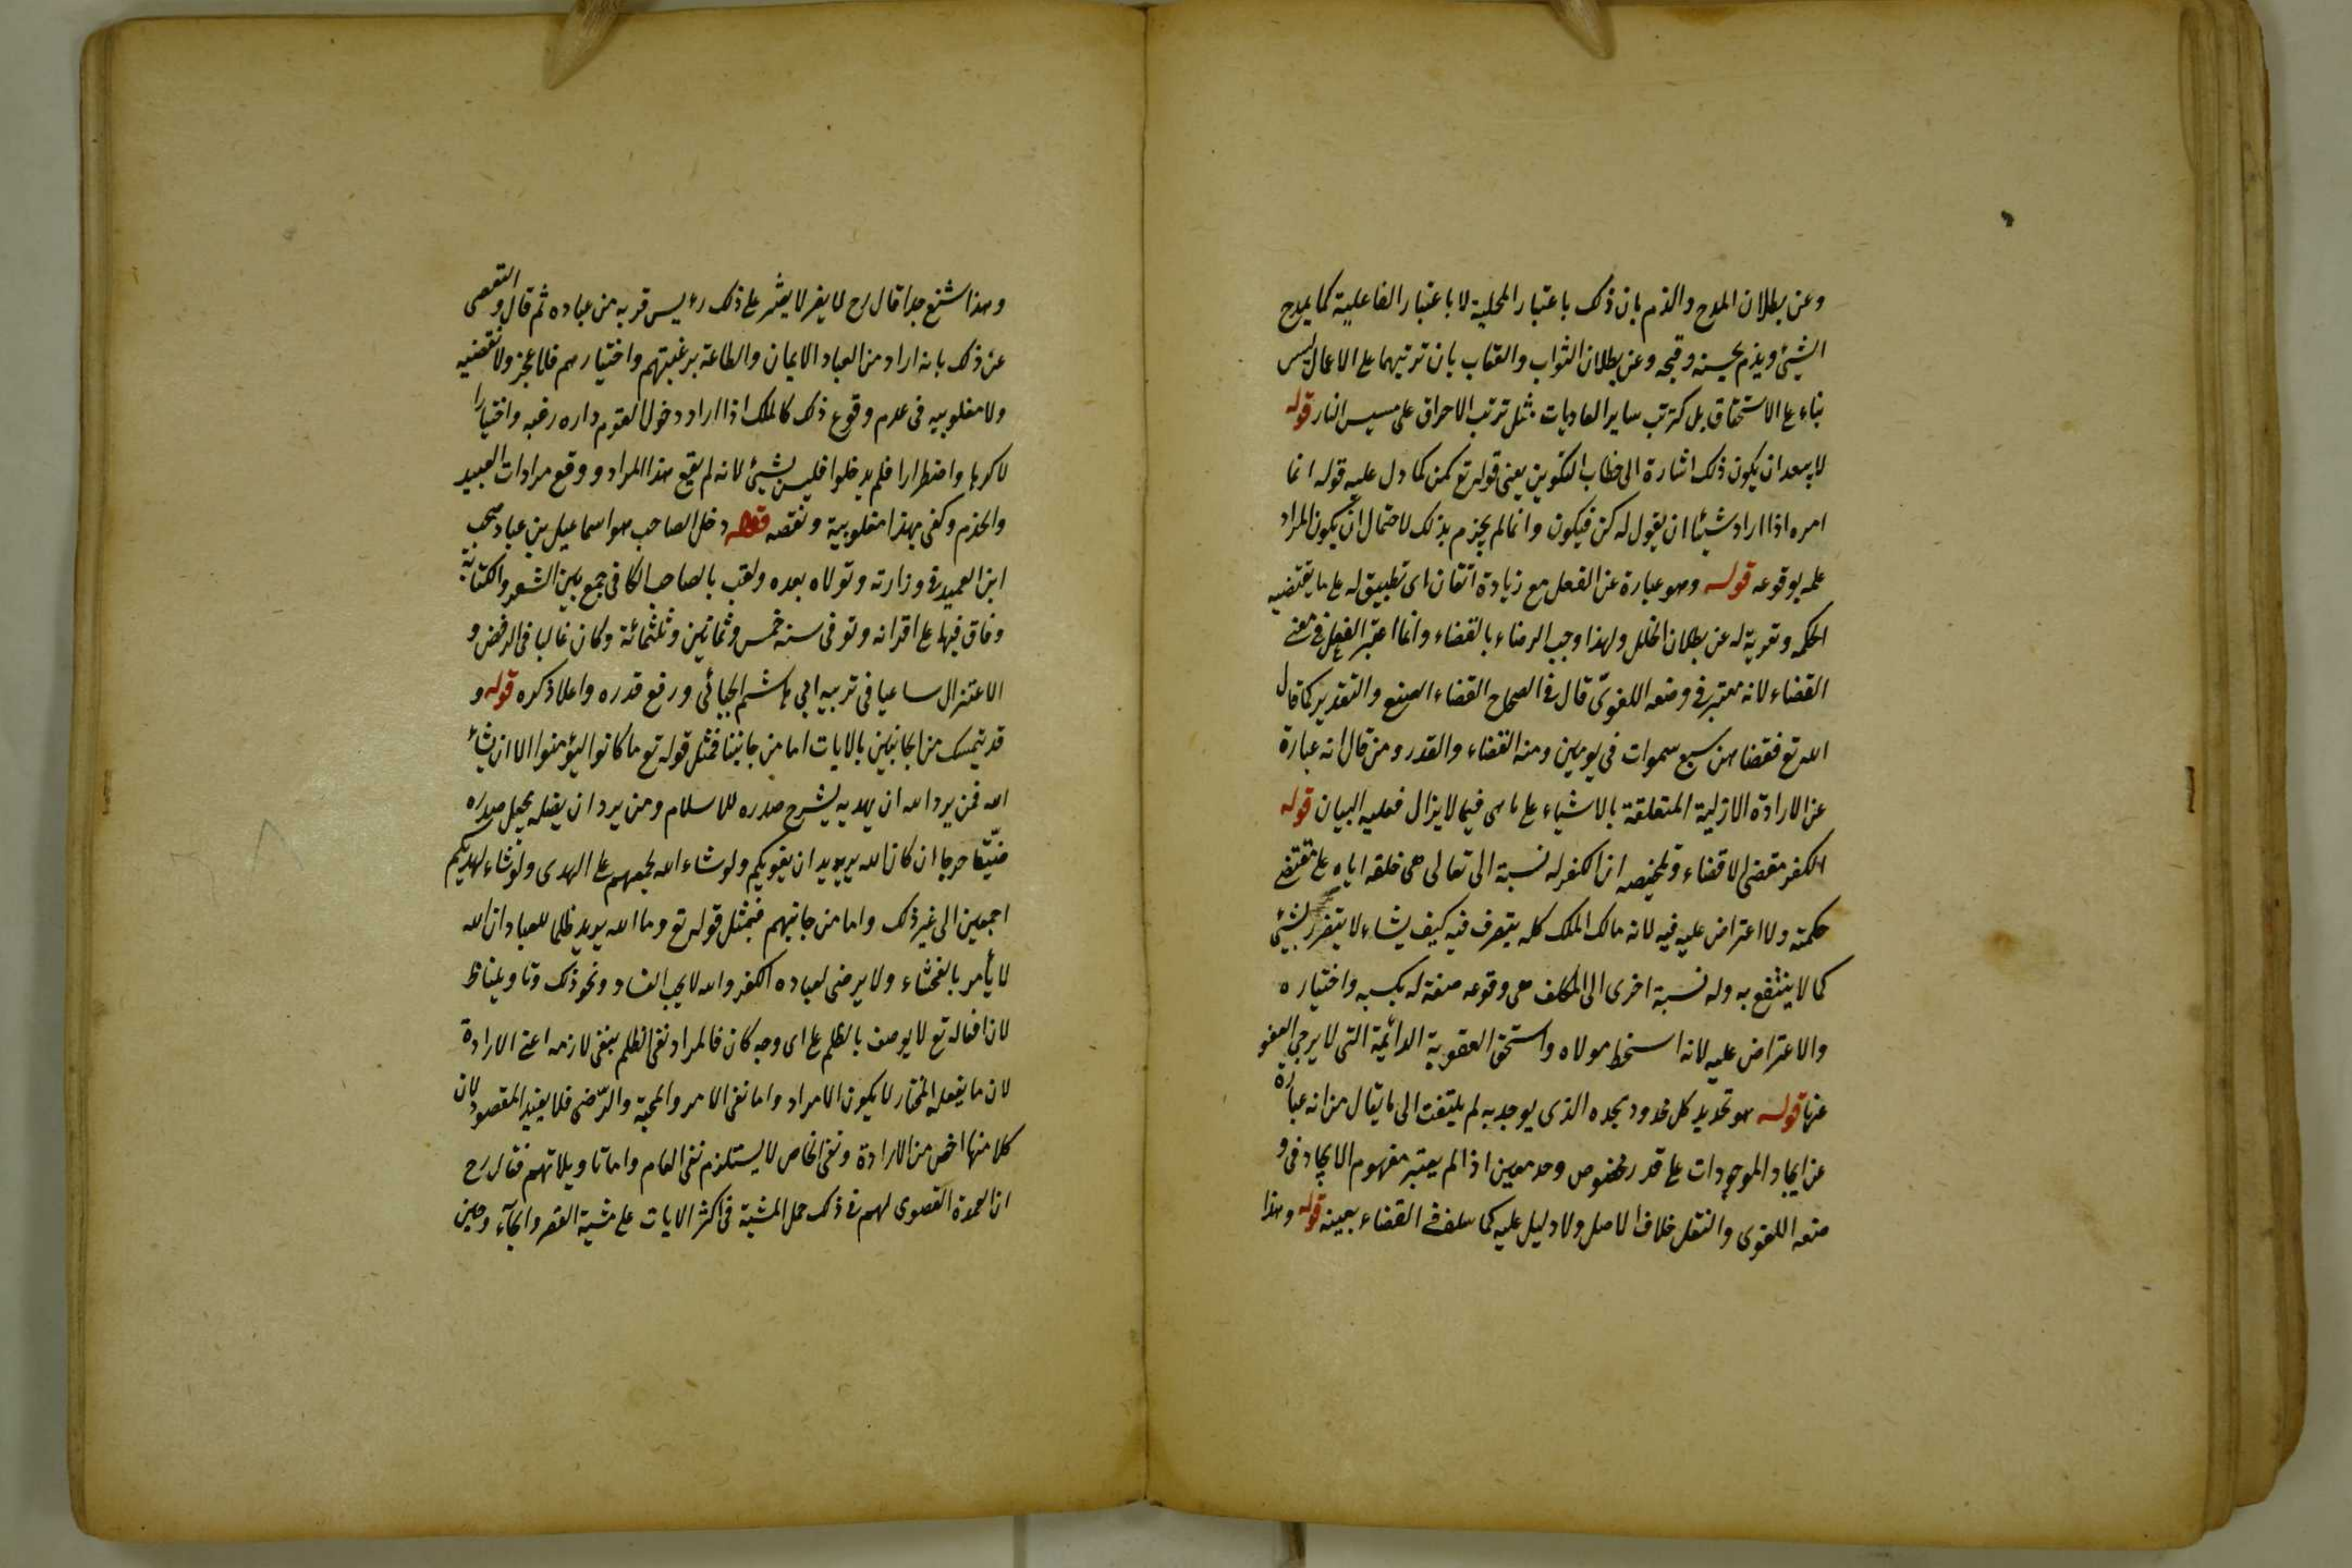 وعن بطلان المدح والذم بان ذلك باعتبار المحلية لا باعتبار الفاعلية كما يمدح
الشيئ ويذم بحسنه وقبحه وعن بطلان الثواب والعقاب بان ترتبهما على الاعمال ليس
بناء على الاستحقاق بل كترتب ساير العاديات مثل ترتب الاحراق على مسيس النار قوله
لا يبعد ان يكون ذلك اشارة الى خطاب التكوين يعنى قوله تع كن كما دل عليه قوله انما
امره اذا اراد شيئا ان يقول له كن فيكون وانما لم يجزم بذلك لاحتمال ان يكون المراد
علمه بوقوعه قوله وهو عبارة عن الفعل مع زيادة اتقان اى تطبيق له على ما يقتضيه
الحكمة وتعرية له عن بطلان الخلل ولهذا وجب الرضاء بالقضاء وانما اعتبر الفعل فى معنى
القضاء لانه معتبر فى وضعه اللغوىّ قال فى الصحاح القضاء الصنع والتقدير كما قال
الله تع فقضاهن سبع سموات فى يومين ومنه القضاء والقدر ومن قال انه عبارة
عن الارادة الازلية المتعلقة بالاشياء على ما هى فيما لا يزال فعليه البيان قوله
الكفر مقضى لا قضاء وتلخيصه ان للكفر له نسبة الى تعالى هى خلقه اياه على مقتضى
حكمته ولا اعتراض عليه فيه لانه مالك الملك كله يتصرف فيه كيف يشاء لا يتضرر بشيئ
كما لا ينتفع به وله نسبة اخرى الى المكلف هى وقوعه صفة له بكسبه واختياره
والاعتراض عليه لانه اسخط مولاه واستحق العقوبة الدائمة التى لا يرجى العفو
عنها قوله هو تحديد كل محدود بحده الذى يوجد به لم يلتفت الى ما يقال من انه عبارة
عن ايجاد الموجودات على قدر مخصوص وحد معين اذا لم يعتبر مفهوم الايجاد فى و
ضعه اللغوى والنقل خلاف الاصل ولا دليل عليه كما سلف فى القضاء بعينه قوله وهذا
وهذا اشنع جدا قال رح لا يغر لا يصبر على ذلك رئيس قرية من عباده ثم قال والتفصى
عن ذلك بانه اراد من العباد الايمان والطاعة برغبتهم واختيارهم فلا عجز ولا نقيضيه
ولا مغلوبيه فى عدم وقوع ذلك كالملك اذا اراد دخول القوم داره رغبه واختيارا
لا كرها واضطرارا فلم يدخلوا فليس بشيئ لانه لم يقع هذا المراد ووقع مرادات العبيد
والخدم وكفى بهذا مغلوبية ونقصه قوله دخل الصاحب هو اسماعيل بن عباد صحب
ابن العميد فى وزارته وتولاه بعده ولقب بالصاحب الكافى جمع بين الشعر والكتابة
وفاق فيها على اقرانه وتوفى سنة خمس وثمانين وثلثمائة وكان غاليا فى الرفض و
الاعتزال ساعيا فى تربية ابي هاشم الجبائى ورفع قدره واعلا ذكره قوله و
قد يتمسك من الجانبين بالايات اما من جانبنا فمثل قوله تع ما كانوا ليؤمنوا الا ان يشاء
الله فمن يرد الله ان يهديه يشرح صدره للاسلام ومن يرد ان يضله يجعل صدره
ضيّقا حرجا ان كان الله يريد ان يغويكم ولو شاء الله لجمعهم على الهدى ولو شاء لهديكم
اجمعين الى غير ذلك واما من جانبهم فبمثل قوله تع وما الله يريد ظلما للعباد ان الله
لا يأمر بالفحشاء ولا يرضى لعباده الكفر والله لا يحب الفساد ونحو ذلك وتاويلنا ظ
لان افعاله تع لا يوصف بالظلم على اى وجه كان فالمراد نفى الظلم بنفى لازمه اعنى الارادة
لان ما يفعله المختار لا يكون الا مراد واما نفى الامر والمحبة والرّضى فلا يفيد المقصود لان
كلا منها اخص من الارادة ونفى الخاص لا يستلزم نفى العام واما تاويلاتهم فقال رح
ان العمدة القصوى لهم فى ذلك حمل المشية فى اكثر الايات على مشية القسر والجآء وحين